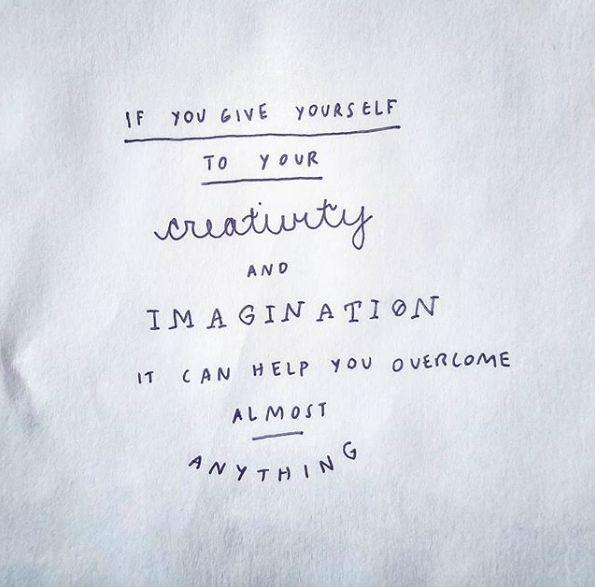 IF YOU GIVE YOURSELF
TO YOUR
creativity
AND
IMAGINATION
IT CAN HELP YOU OVERCOME
ALMOST
ANYTHING